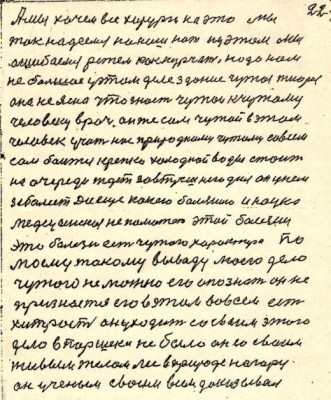 22
А мы хочем все хирурги на это мы
так надеемся на наш нож мы этом мы
ошибаемся режем как курчат, надо нам
не большое у этом деле здание чутья теория
она не ясна что значит чутья к чужому
человеку врач. он же сам чужой в этом
человек учат нас природному чутому совсем
сам боится крепко холодной воды стоит
на очереди ждет завтрешнего дня он у нем
заболит Да еще какой болезнию и наука
медицинская не поможет этой болезни
это болезнь есть чутого характера По
моему такому выводу моего дело
чутого не можно его опознать он не
признается его в этом вовсем есть
хитрость он уходит со своим этого
дело в Паршека не было он со своим
живым телом лез в природе на гору.
он ученым своим всем доказывал